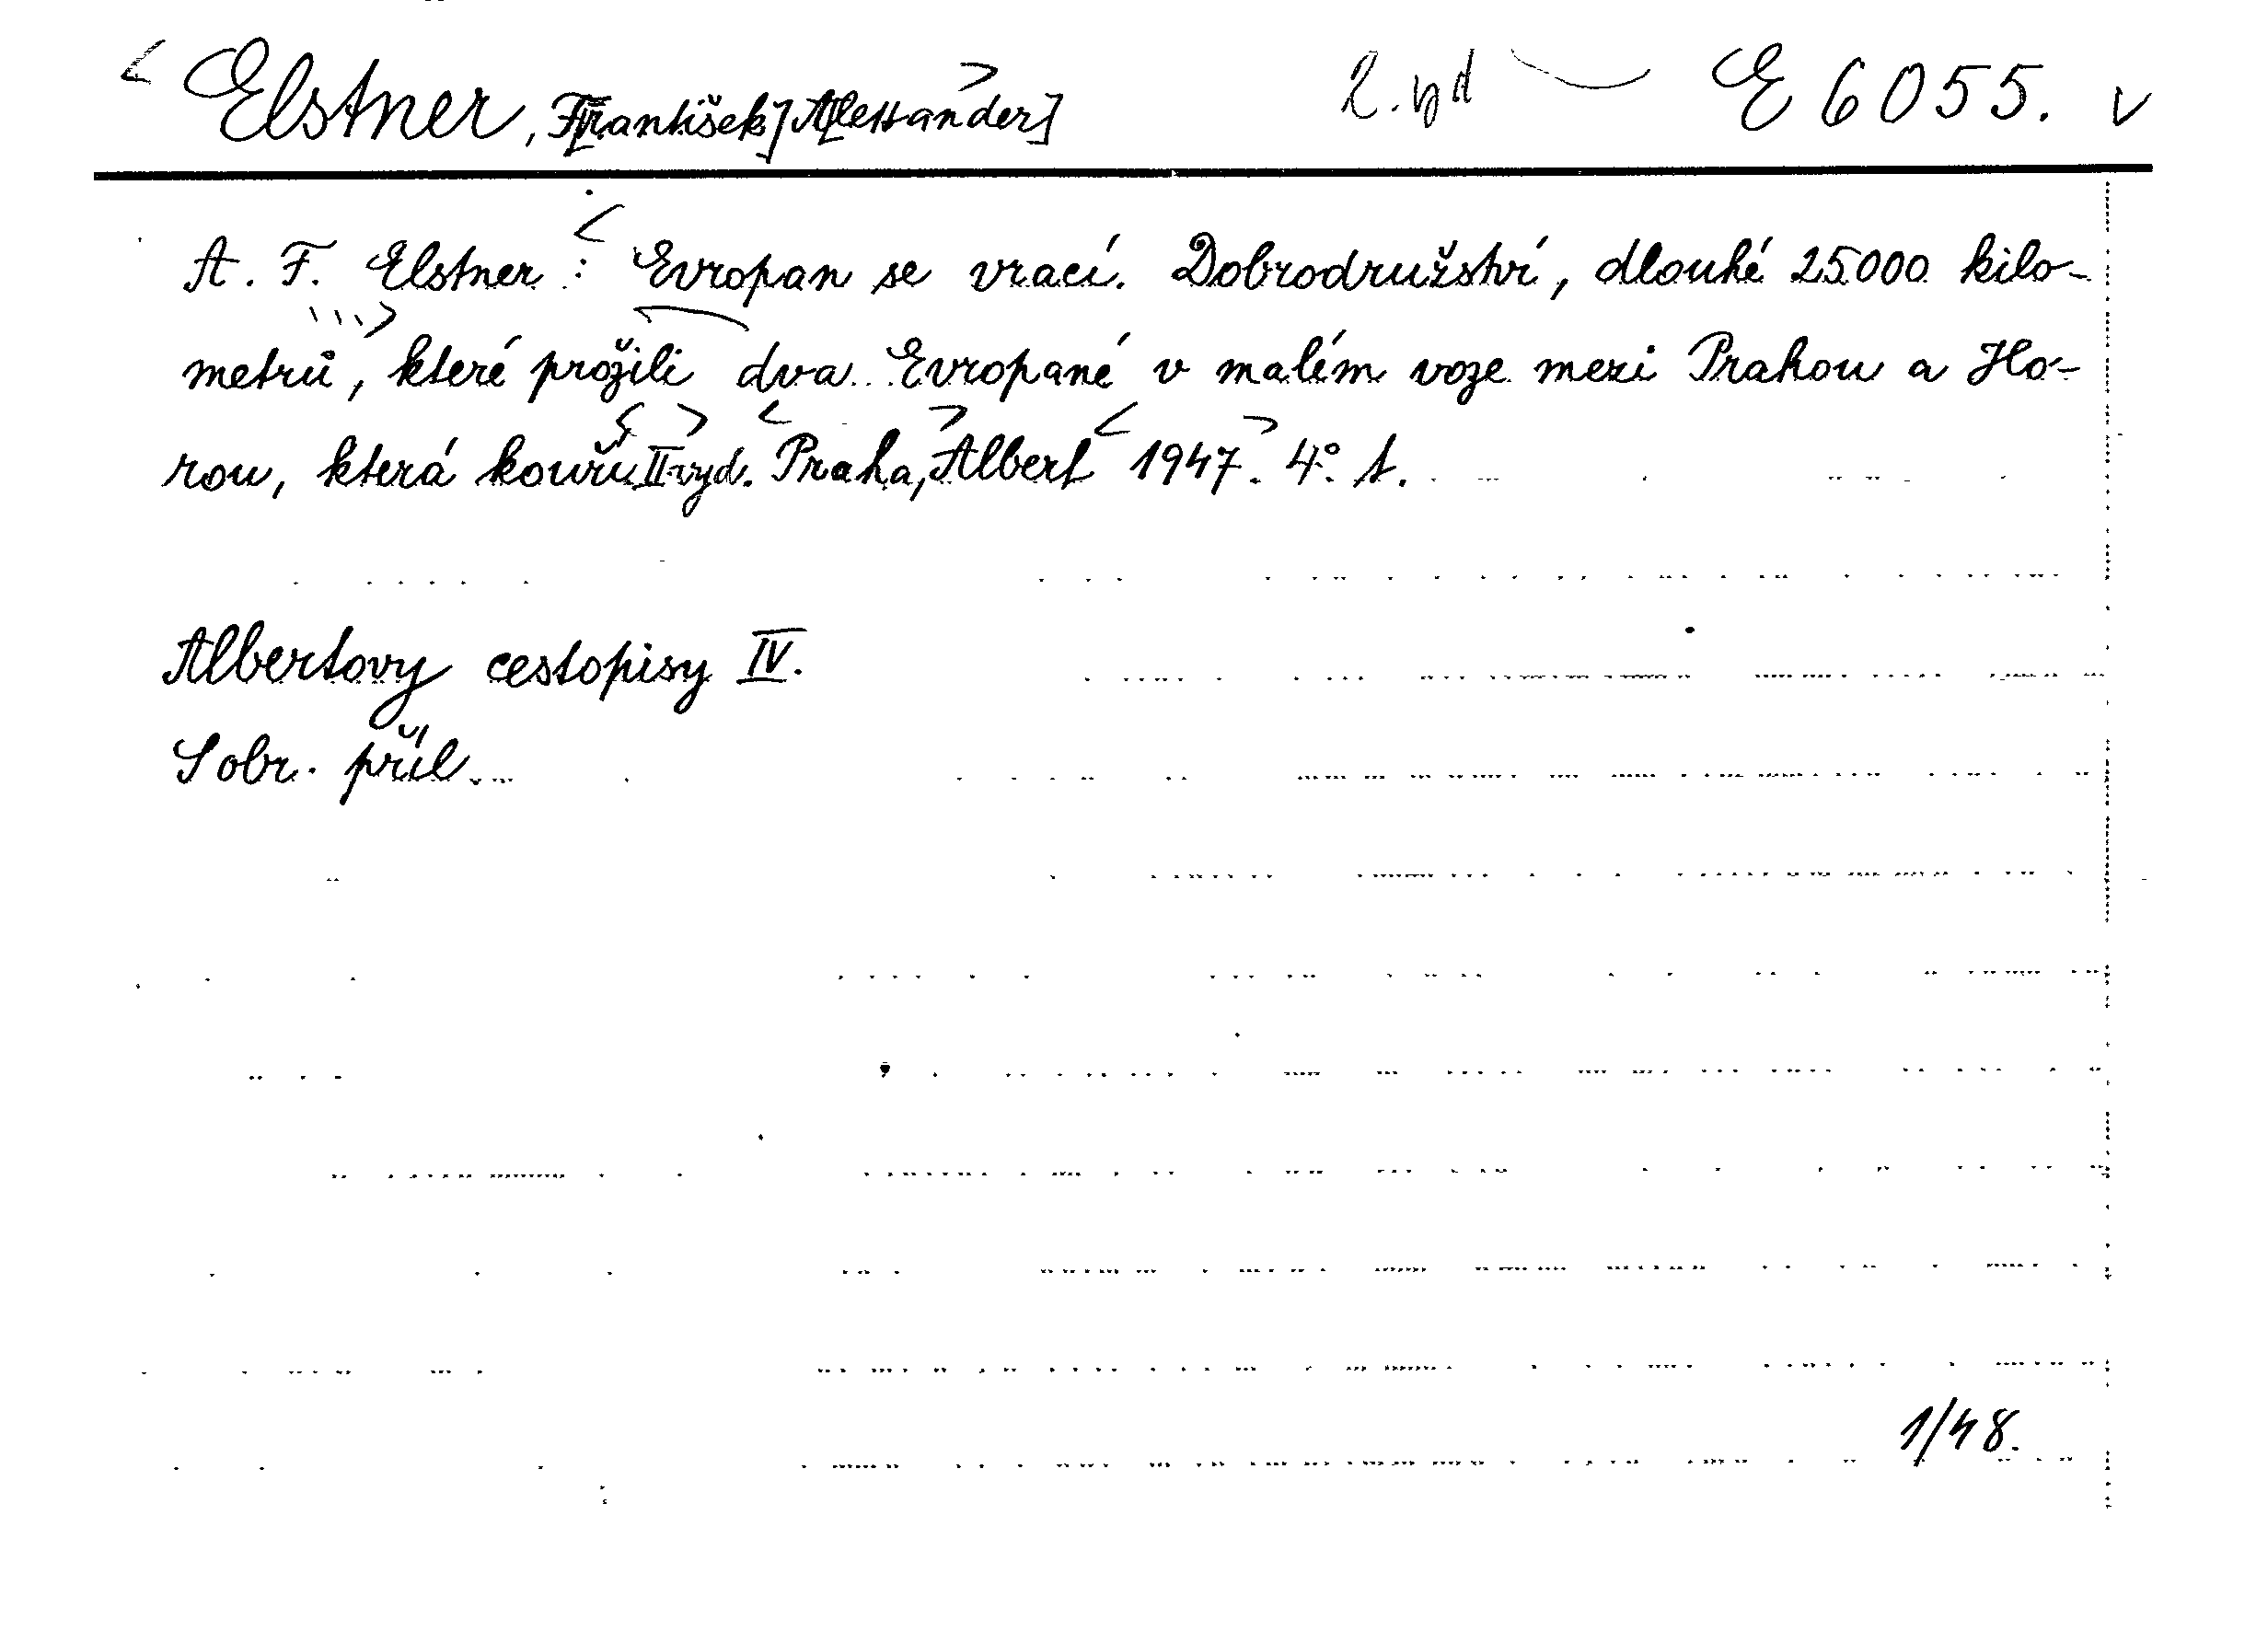 < Elstner, F[rantišek] A[lexander] > 2. vyd E 6055. v
A. F. Elstner : < Evropan se vrací. Dobrodružství, dlouhé 25000 kilo-
metrů, které prožili dva Evropané v malém voze mezi Prahou a Ho-
rou, která kouří. II. vyd. Praha, Albert 1947. 4° t.
Albertovy cestopisy IV.
S obr. příl.
1/48.